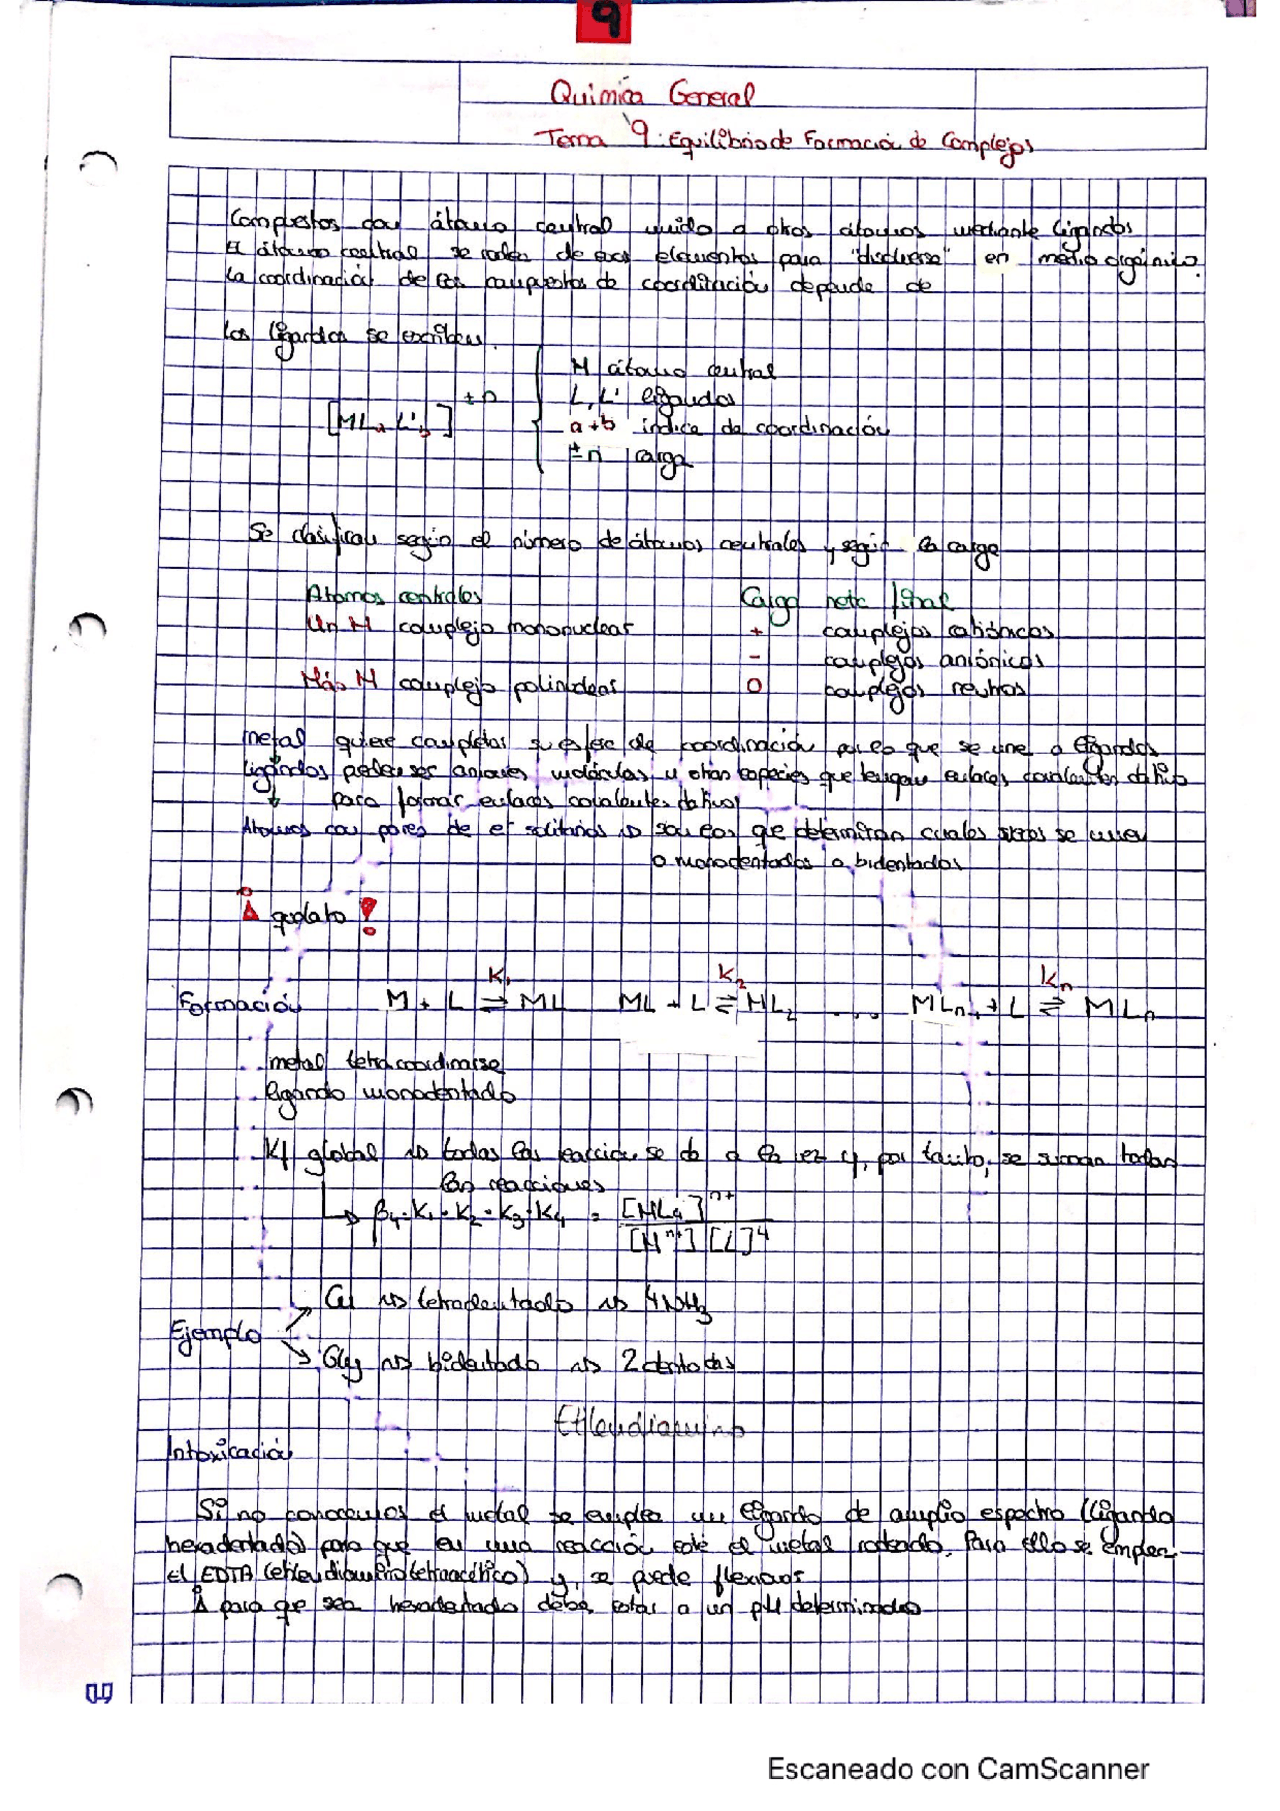 9
Química General
Tema 9: Equilibrio de Formación de Complejos
Compuestos con átomo central unido a otros átomos mediante ligandos
El átomo central se rodea de esos elementos para "disolverse" en medio orgánico.
La coordinación de los compuestos de coordinación depende de
Los ligandos se escriben.
M átomo central
[MLa L'b]±n
L, L' ligandos
a+b índice de coordinación
±n carga
Se clasifican según el número de átomos centrales y según la carga
Atomos centrales Carga neta final
Un M complejo mononuclear + complejos catiónicos
- complejos aniónicos
Más M complejo polinuclear 0 complejos neutros
metal quiere completar su esfera de coordinación por eso que se une a ligandos
ligandos pueden ser aniones, moléculas u otras especies que tengan enlaces covalentes dativo
↓ para formar enlaces covalentes dativos
Átomos con pares de e- solitarios son los que determinan cuales se unen
o monodentados o bidentados
¡Δ quelato!
Formación M + L ⇌ ML ML + L ⇌ ML2 .... MLn-1 + L ⇌ MLn
K1 K2 Kn
metal tetracoordinarse
ligando monodentado
Kf global todas las reacciones se da a la vez y, por tanto, se suman todas
las reacciones
↳ β4 = K1 · K2 · K3 · K4 = [ML4]n+ / [Mn+] [L]4
Cu tetradentado 4NH3
Ejemplo
Gly bidentado 2 dentados
Etilendiamino
Intoxicación
Si no conocemos el metal se emplea un ligando de amplio espectro (ligando
hexadentado) para que en una reacción esté el metal rodeado. Para ello se emplea
el EDTA (etilendiaminotetraacético) y, se puede flexionar
Δ para que sea hexadentado debe estar a un pH determinado
Escaneado con CamScanner